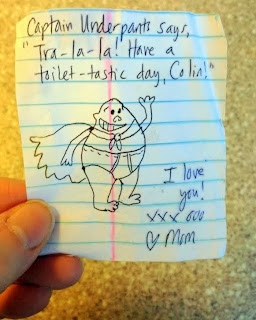 Captain Underpants says,
"Tra-la-la! Have a
toilet-tastic day, Colin!"
I love
you!
xxx ooo
♡ Mom